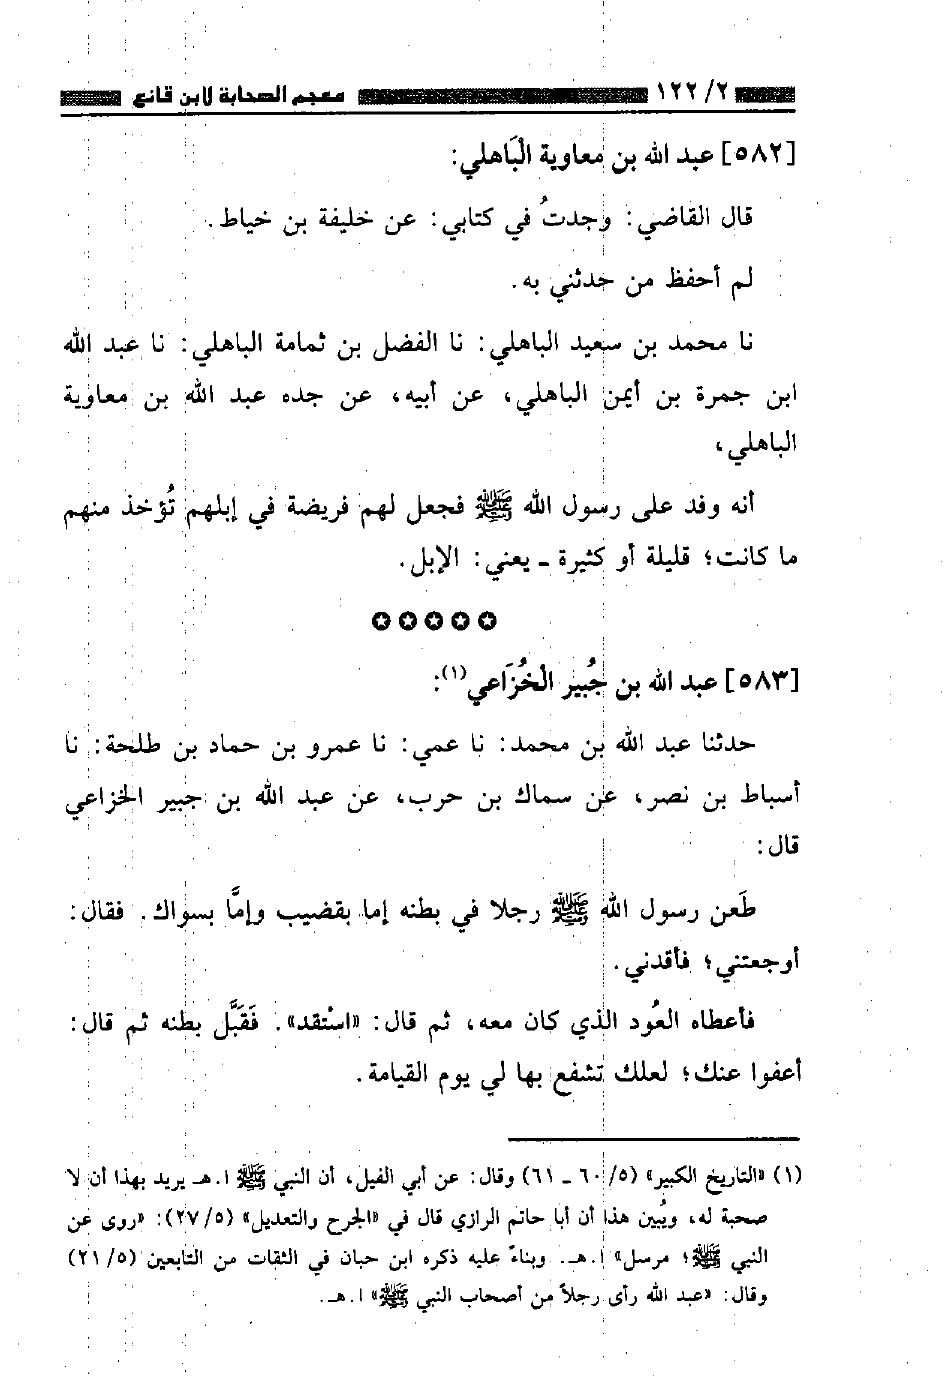 ١٢٢/٢ معجم الصحابة لابن قانع
[٥٨٢] عبد الله بن معاوية الْبَاهلي:
قال القاضي: وجدتُ في كتابي: عن خليفة بن خياط.
لم أحفظ من حدثني به.
نا محمد بن سعيد الباهلي: نا الفضل بن ثمامة الباهلي: نا عبد الله
ابن جمرة بن أيمن الباهلي، عن أبيه، عن جده عبد الله بن معاوية
الباهلي،
أنه وفد على رسول الله ﷺ فجعل لهم فريضة في إبلهم تُؤخذ منهم
ما كانت؛ قليلة أو كثيرة ـ يعني: الإبل.
✪✪✪✪✪
[٥٨٣] عبد الله بن جُبير الْخُزَاعي(١):
حدثنا عبد الله بن محمد: نا عمي: نا عمرو بن حماد بن طلحة: نا
أسباط بن نصر، عن سماك بن حرب، عن عبد الله بن جبير الخزاعي
قال:
طَعن رسول الله ﷺ رجلا في بطنه إما بقضيب وإمَّا بسواك. فقال:
أوجعتني؛ فأقدني.
فأعطاه العُود الذي كان معه، ثم قال: «اسْتقد». فَقَبَّل بطنه ثم قال:
أعفوا عنك؛ لعلك تشفع بها لي يوم القيامة.
(١) «التاريخ الكبير» (٥/ ٦٠ ـ ٦١) وقال: عن أبي الفيل، أن النبي ﷺ ا.هـ يريد بهذا أن لا
صحبة له، ويُبين هذا أن أبا حاتم الرازي قال في «الجرح والتعديل» (٥/ ٢٧): «روى عن
النبي ﷺ؛ مرسل» ا.هـ. وبناءً عليه ذكره ابن حبان في الثقات من التابعين (٥/ ٢١)
وقال: «عبد الله رأى رجلاً من أصحاب النبي ﷺ» ا.هـ.